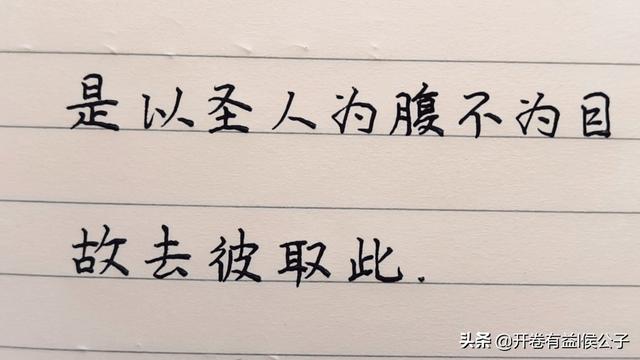 是以圣人为腹不为目
故去彼取此.
头条 @开卷有益|侯公子